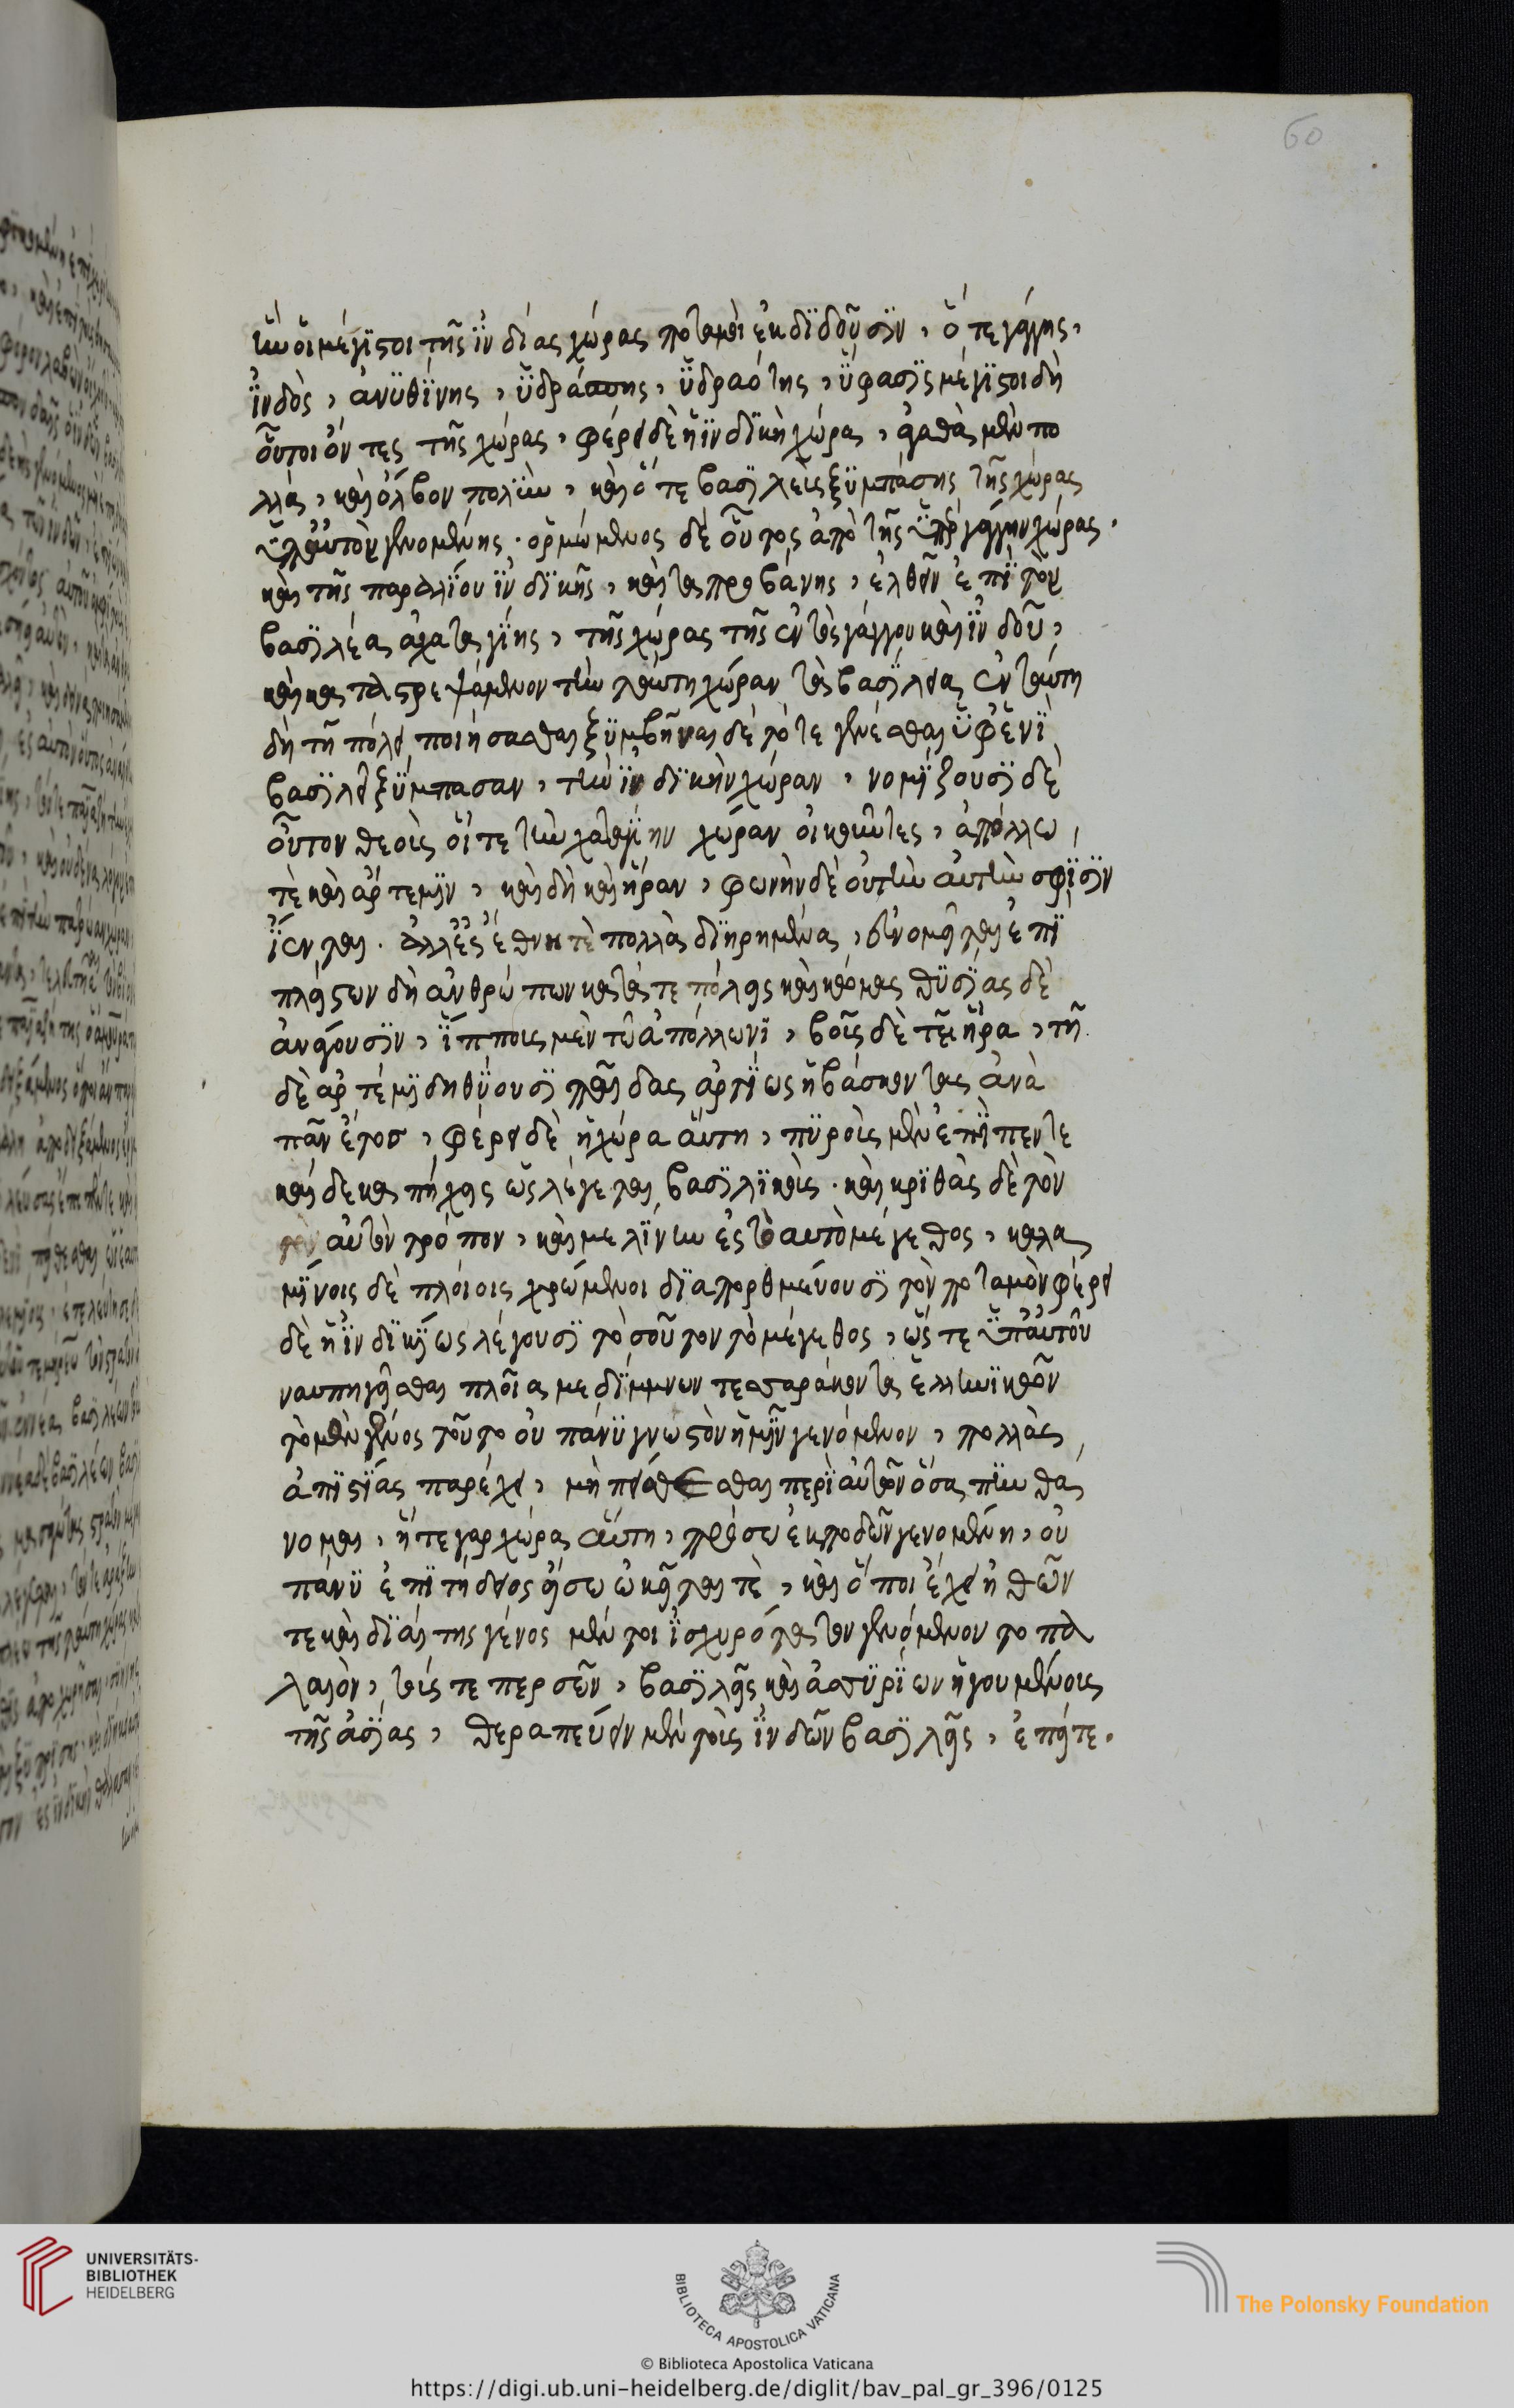 60
ἣν οἱ μέγϊστοι τῆς ϊνδίας χώρας ποταμοὶ ἐκδϊδοῦσϊν, ὅ τε γάγγης,
ϊνδὸς, ἀνϋθϊνης, ϋδράσπης, ϋδραότης, ϋφασϊς μέγϊστοι δὴ
οὗτοι ὄντες τῆς χώρας, φέρει δὲ ἡ ϊνδϊκὴ χώρα, ἀγαθὰ μὲν πο
λλὰ, καὶ ὄλβον πολϊὺν, καὶ ὅ τε βασϊλεὺς ξϋμπάσης τῆς χώρας
ϋπ' αὐτὸν γενομένης. ὁρμώμενος δὲ οὗτος ἀπὸ τῆς ϋπὲρ γάγγην χώρας.
καὶ τῆς παραλϊου ϊνδϊκῆς, καὶ ταπροβάνης, ἐλθεῖν ἐπϊ τὸν
βασϊλέα χαταγϊης, τῆς χώρας τῆς ἐντὸς γάγγου καὶ ϊνδοῦ,
καὶ καταστρεψάμενον τὴν ταύτη χώραν τὰ βασϊλεια ἐν ταύτη
δὴ τῆ πόλει ποιήσασθαι ξϋμβῆναι δὲ τότε γενέσθαι ϋφ' ἑνϊ
βασϊλεῖ ξϋμπασαν, τὴν ϊνδϊκὴν χώραν, νομϊζουσϊ δὲ
οὗτοι θεοὺς οἵ τε τὴν χαταγϊην χώραν οἰκοῦντες, ἀπόλλω
τὲ καὶ ἄρτεμϊν, καὶ δὴ καὶ ἥραν, φωνὴν δὲ οὐ τὴν αὐτὴν σφϊσϊν
ϊενται. ἀλλ' ἐς ἔθνη τὲ πολλὰ δϊῃρημένα, εὐνομεῖται ἐπϊ
πλεῖστον δὴ ἀνθρώπων κατά τε πόλεις καὶ κόμας θϋσϊας δὲ
ἀνάγουσϊν, ϊππους μὲν τῷ ἀπόλλωνϊ, βοῦς δὲ τῆ ἥρα, τῆ
δὲ ἀρτέμϊδη θϋουσϊ παῖδας ἀρτϊως ἡβάσκοντας ἀνὰ
πᾶν ἔτος, φέρει δὲ ἡ χώρα αὕτη, πϋροὺς μὲν ἐπϊ πεντε
καὶ δεκα πήχεις ὡς λέγεται βασϊλϊκοὺς. καὶ κρϊθὰς δὲ τὸν
τὸν αὐτὸν τρόπον, καὶ μελϊνην ἐς τὸ αὐτὸ μέγεθος, καλα
μϊνοις δὲ πλοίοις χρώμενοι δϊαπορθμεύουσϊ τὸν ποταμὸν φέρει
δὲ ἡ ϊνδϊκὴ ὡς λέγουσϊ τὸσοῦτον τὸ μέγεθος, ὥστε ϋπ' αὐτῶν
ναυπηγεῖσθαι πλοῖα μεδϊμνων τεσσαράκοντα ἑλληνϊκῶν
τὸ μὲν γένος τοῦτο οὐ πάνϋ γνωστὸν ἡμϊν γενόμενον, πολλὰς
ἀπϊστϊας παρέχει, μὴ πείθεσθαι περὶ αὐτῶν ὅσα πϋνθά
νομαι, ἥ τε γὰρ χώρα αὕτη, πρόσω ἐκποδῶν γενομένη, οὐ
πάνϋ ἐπϊτήδειος εἴσω ὠκεῖται τὲ, καὶ ὅποι ἔχει ἠθῶν
τε καὶ δϊαίτης γένος μέν τοι ϊσχυρότατον γενόμενον το πα
λαιὸν, τούς τε περσῶν, βασϊλεῖς καὶ ἀσσϋρϊων ἡγουμένους
τῆς ἀσϊας, θεραπεύειν μὲν τοὺς ϊνδῶν βασϊλεῖς, ἐπεί τε.
UNIVERSITÄTS-
BIBLIOTHEK
HEIDELBERG
BIBLIOTECA APOSTOLICA VATICANA
The Polonsky Foundation
© Biblioteca Apostolica Vaticana
https://digi.ub.uni-heidelberg.de/diglit/bav_pal_gr_396/0125